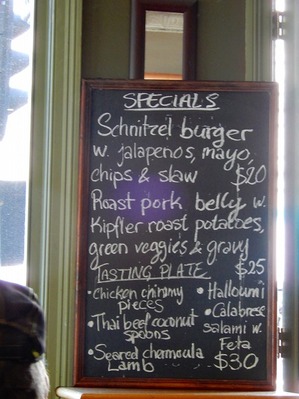 SPECIALS
Schnitzel burger
w. jalapenos, mayo,
chips & slaw $20
Roast pork belly w.
Kipfler roast potatoes,
green veggies & gravy
TASTING PLATE $25
• Chicken chimmy pieces
• Thai beef coconut spoons
• Seared chermoula Lamb
• Halloumi
• Calabrese salami w. Feta
$30